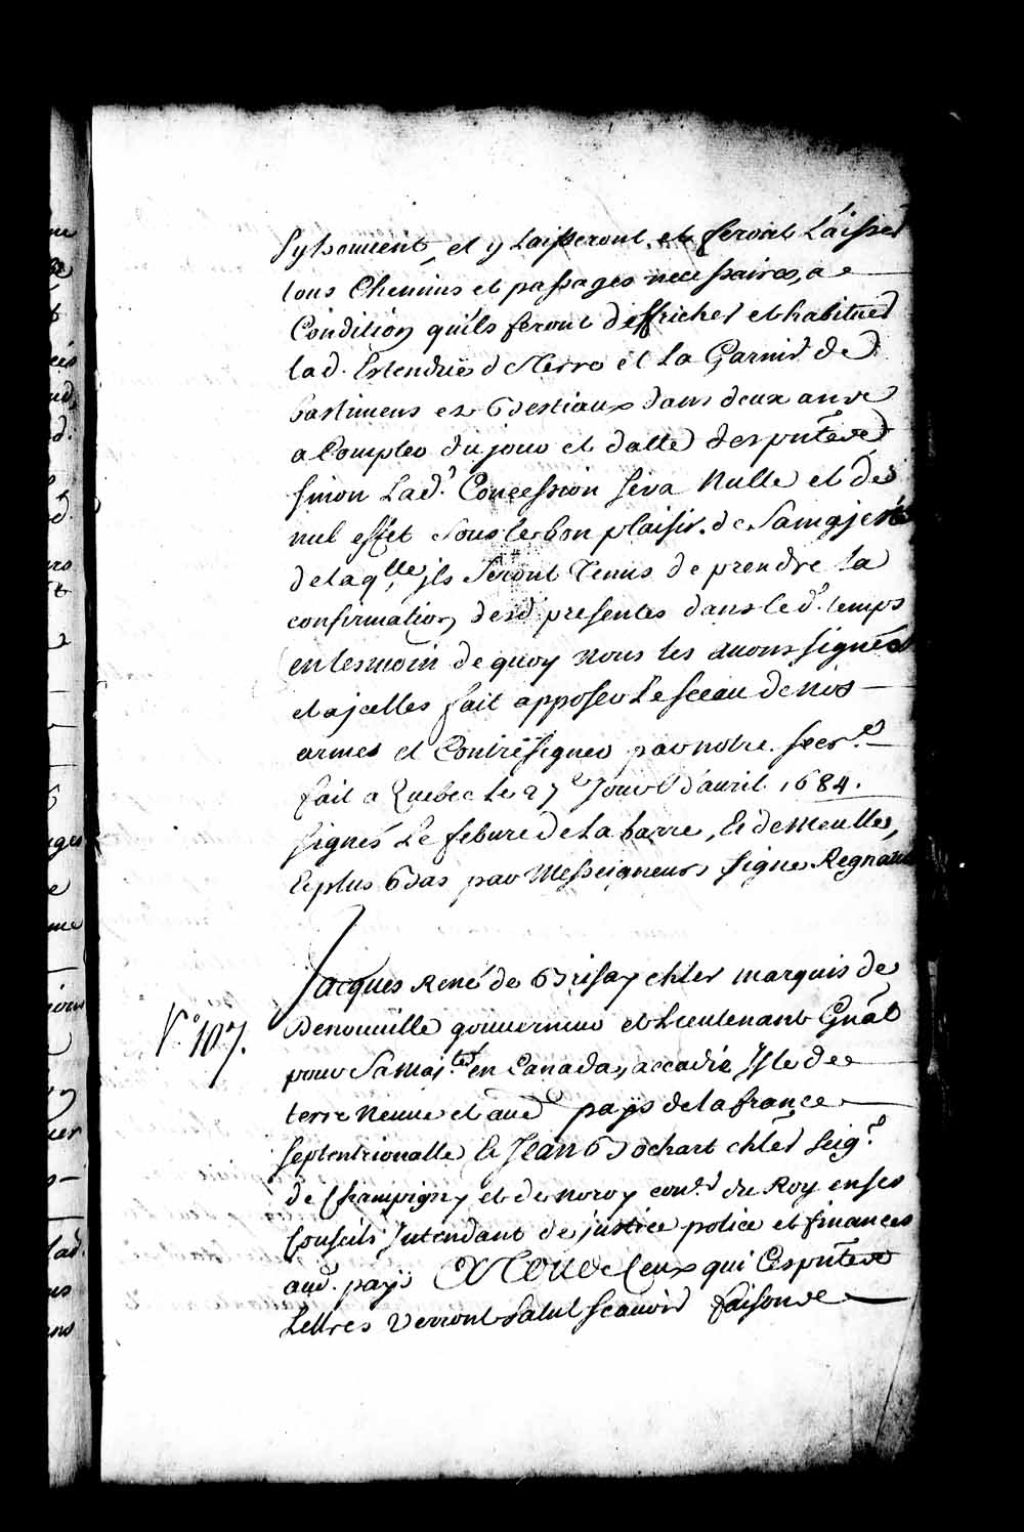 et y Laisseront et feront Laisser
tous Chemins et passages necessaires, a
Condition quils feront deffricher et habituer
lad. Estendue de Terre et La Garnir de
bastimens et Bestiaux dans deux ans
a Compter du jour et datte des pntes
sinon Lad.e Concession sera Nulle et de
nul effet sous le bon plaisir de Samajesté
de laqlle jls seront tenus de prendre la
confirmation desd presentes dans le d. temps
en tesmoin de quoy nous les auons signées
et ajcelles fait apposer le sceau de nos
armes et Contresigner par notre secre
fait a Quebec le 27e Jour d'auril 1684.
signés Le febure de La barre, & demeulles,
& plus bas par Messeigneurs signé Regnault
Jacques René de Brisay chler marquis de
N.o 107.
Denonuille gouuerneur et Lieutenant Gnal
pour Samaj.té en Canada, accadie Isle de
terre Neuue et au.e pays de la france
septentrionalle & Jean Bochart chler seig.r
de Champigny et de noroy con.er du Roy en ses
Conseils Jntendant de justice police et finances
aud. pays A Tous Ceux qui Cespntes
Lettres Verront Salut scauoir faisons